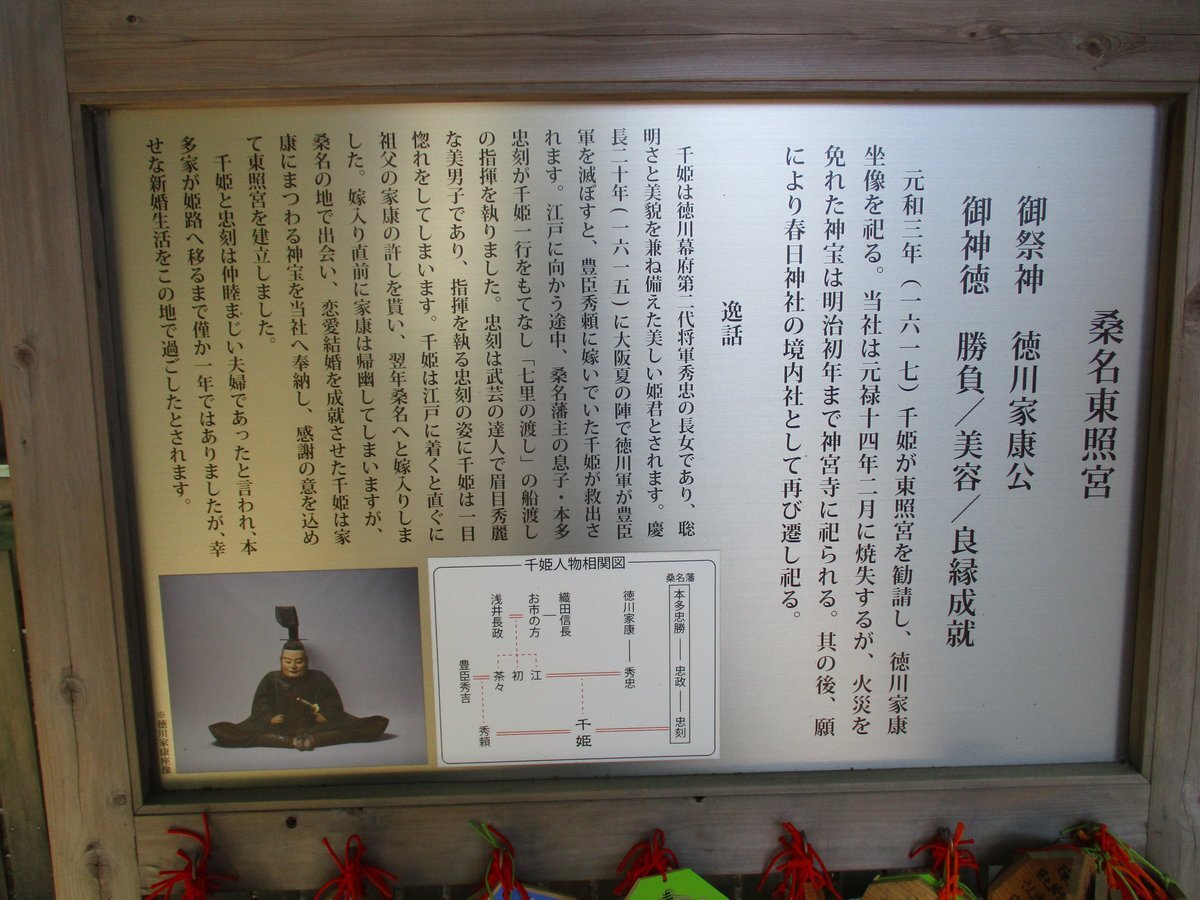 桑名東照宮
御祭神　徳川家康公
御神徳　勝負／美容／良縁成就
元和三年（一六一七）千姫が東照宮を勧請し、徳川家康
坐像を祀る。当社は元禄十四年二月に焼失するが、火災を
免れた神宝は明治初年まで神宮寺に祀られる。其の後、願
により春日神社の境内社として再び遷し祀る。
逸話
千姫は徳川幕府第二代将軍秀忠の長女であり、聡
明さと美貌を兼ね備えた美しい姫君とされます。慶
長二十年（一六一五）に大阪夏の陣で徳川軍が豊臣
軍を滅ぼすと、豊臣秀頼に嫁いでいた千姫が救出さ
れます。江戸に向かう途中、桑名藩主の息子・本多
忠刻が千姫一行をもてなし「七里の渡し」の船渡し
の指揮を執りました。忠刻は武芸の達人で眉目秀麗
な美男子であり、指揮を執る忠刻の姿に千姫は一目
惚れをしてしまいます。千姫は江戸に着くと直ぐに
祖父の家康の許しを貰い、翌年桑名へと嫁入りしま
した。嫁入り直前に家康は帰幽してしまいますが、
桑名の地で出会い、恋愛結婚を成就させた千姫は家
康にまつわる神宝を当社へ奉納し、感謝の意を込め
て東照宮を建立しました。
千姫と忠刻は仲睦まじい夫婦であったと言われ、本
多家が姫路へ移るまで僅か一年ではありましたが、幸
せな新婚生活をこの地で過ごしたとされます。
千姫人物相関図
桑名藩
本多忠勝
忠政
忠刻
徳川家康
秀忠
千姫
織田信長
お市の方
浅井長政
江
初
茶々
豊臣秀吉
秀頼
※徳川家康座像